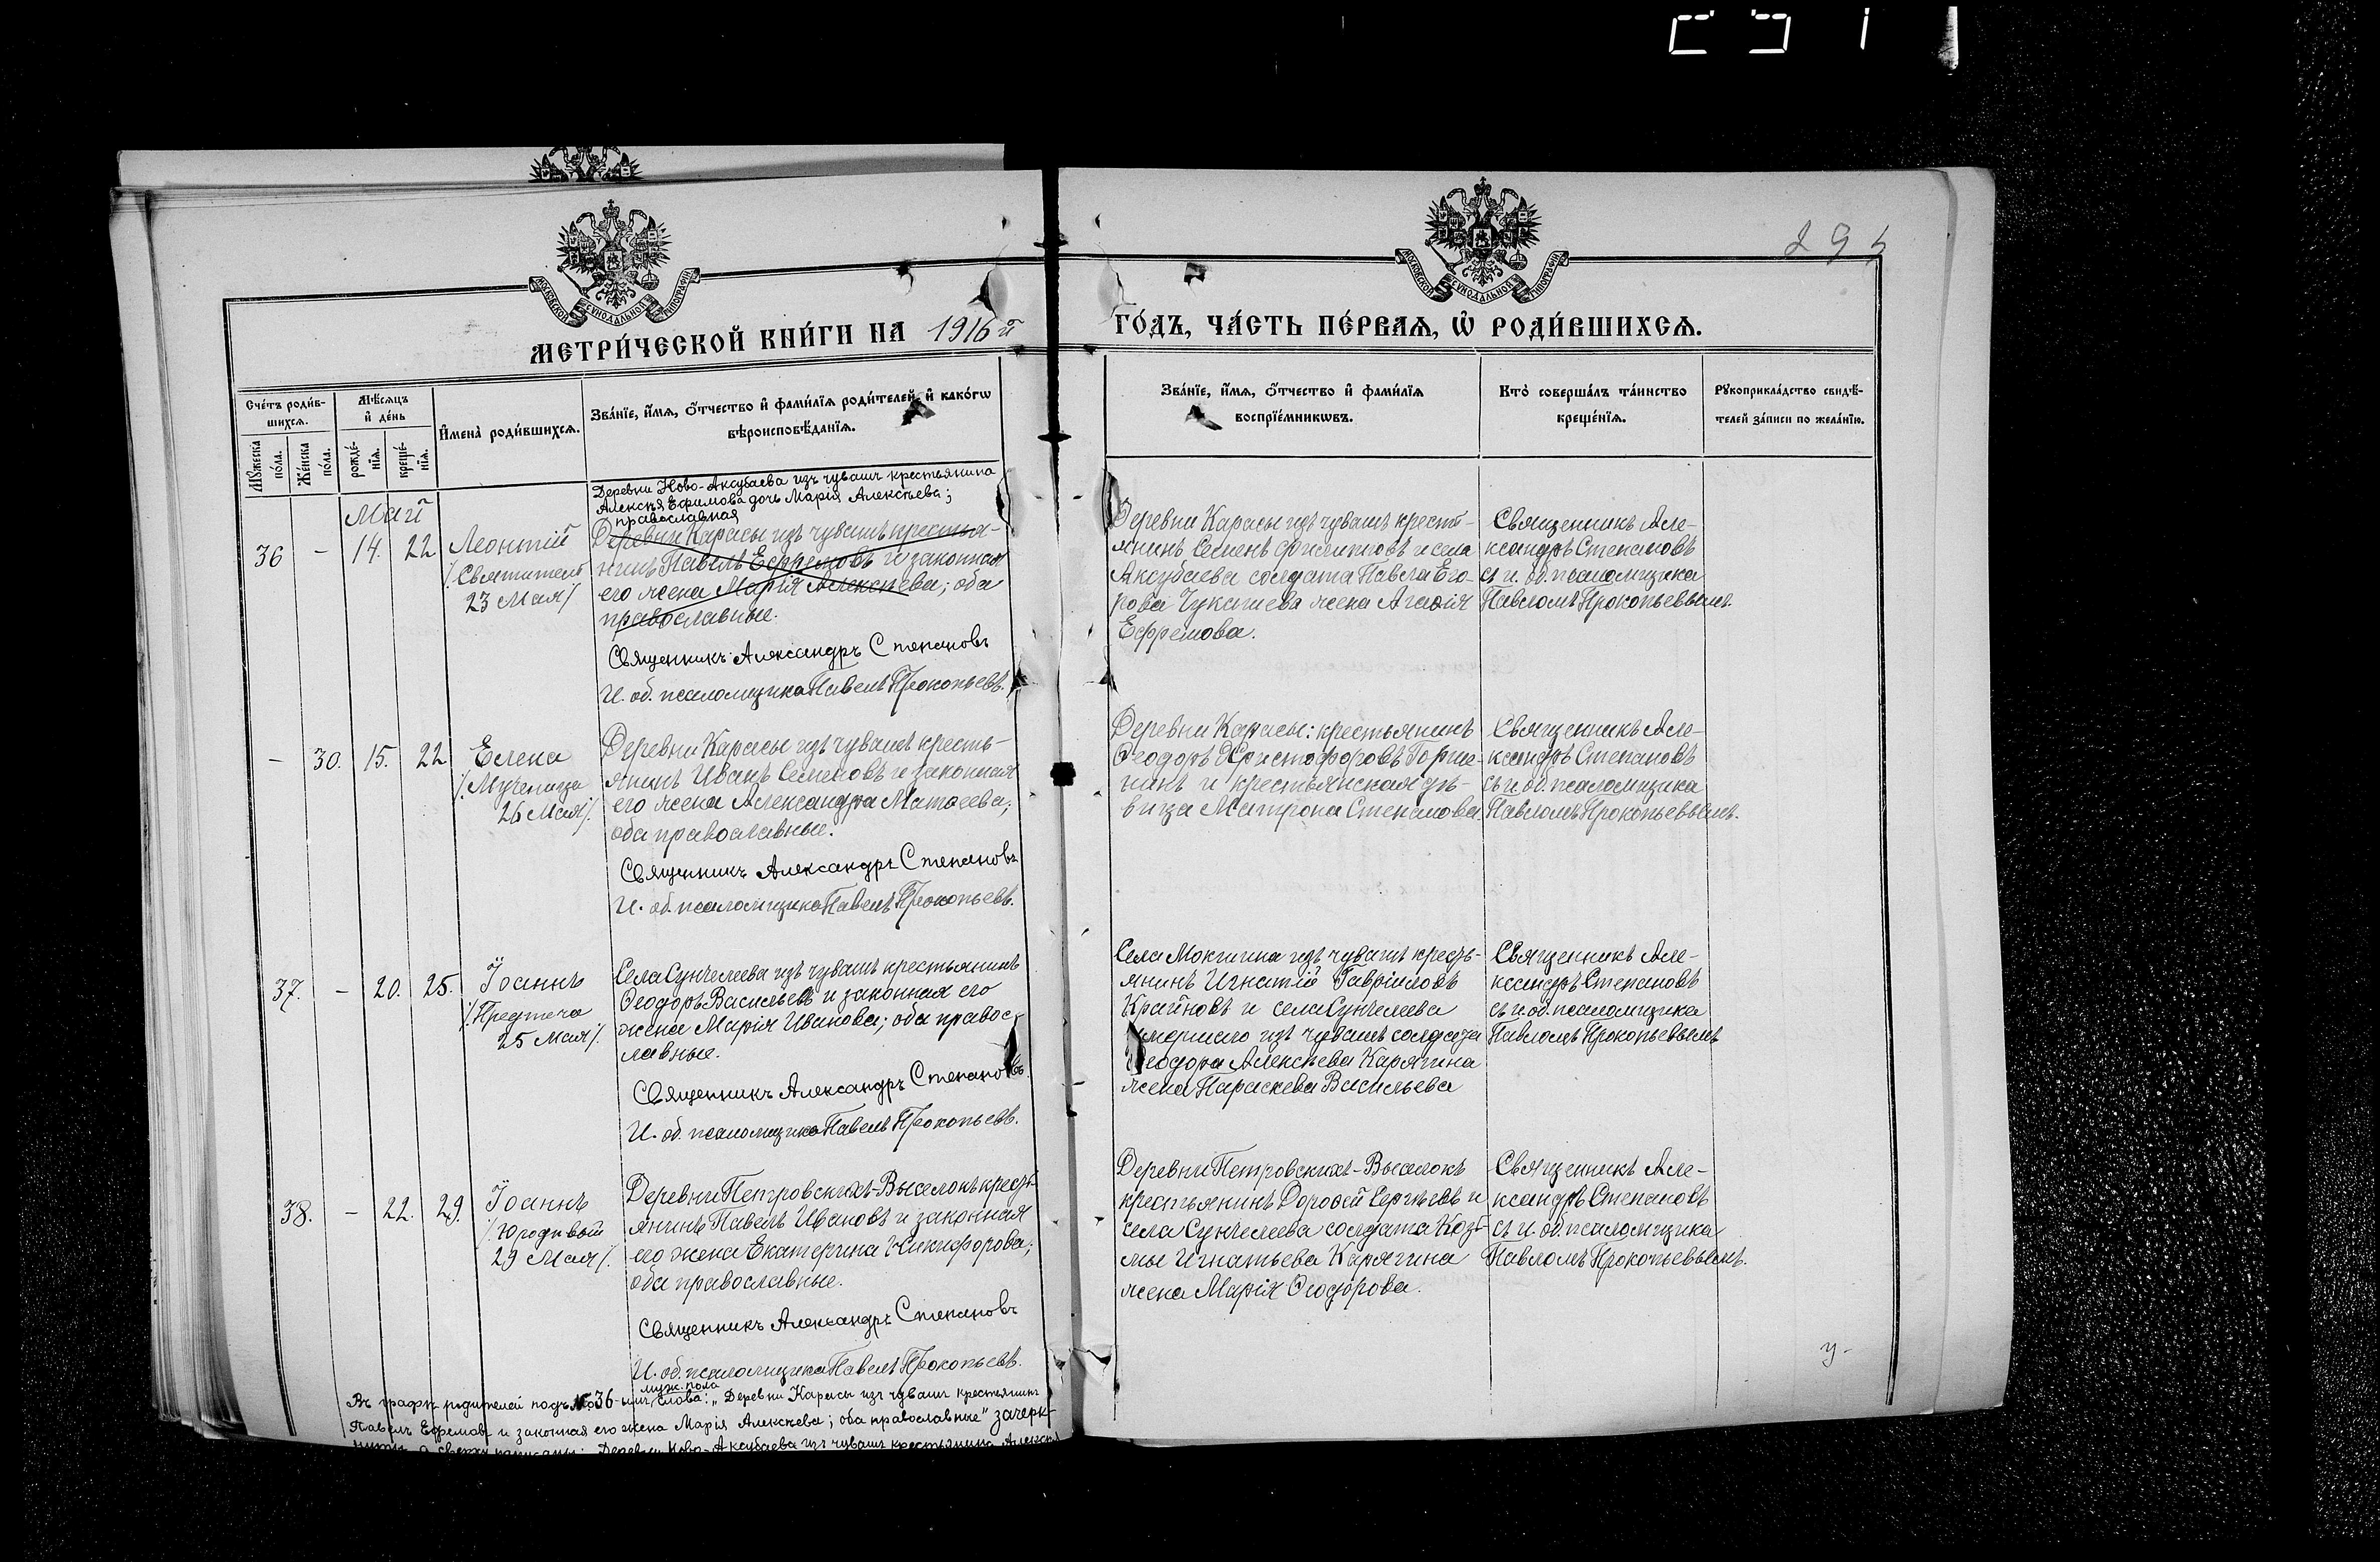 295
МОСКОВСКОЙ СѴНОДАЛЬНОЙ ТИПОГРАФІИ
МОСКОВСКОЙ СѴНОДАЛЬНОЙ ТИПОГРАФІИ
МЕТРИ́ЧЕСКОЙ КНИ́ГИ НА 1916й
ГО́ДЪ, ЧА́СТЬ ПЕ́РВАѦ, Ѿ РОДИ́ВШИХСѦ.
Сче́тъ роди́в-
шихсѧ.
Мꙋ́жеска
по́ла.
Же́нска
по́ла.
Мѣ́сѧцъ
и҆ де́нь
рожде́-
нїѧ.
креще́-
нїѧ.
И҆мена̀ роди́вшихсѧ.
Зва́нїе, и҆́мѧ, ѻ҆́тчество и҆ фами́лїѧ роди́телей, и҆ како́гѡ
вѣроисповѣ́данїѧ.
Зва́нїе, и҆́мѧ, ѻ҆́тчество и҆ фами́лїѧ
воспрїе́мникѡвъ.
Кто̀ соверша́лъ та́инство
креще́нїѧ.
Рꙋкоприкла́дство свидѣ́-
телей за́писи по жела́нїю.
Май
36 - 14. 22
Леонтій
/Святитель
23 Мая/
Деревни Ново-Аксубаева изъ чувашъ крестьянина
Алексѣя Ефимова дочь Марія Алексѣева;
православная
Деревни Карасы изъ чувашъ крестья-
нинъ Павелъ Ефремовъ и законная
его жена Марія Алексѣева; оба
православные.
Священникъ Александръ Степановъ
И. об. псаломщика Павелъ Прокопьевъ.
Деревни Карасы изъ чувашъ крестʼ-
янинъ Семенъ Филипповъ и села
Аксубаева солдата Павла Его-
рова Чукашева жена Агафія
Ефремова.
Священникъ Але-
ксандръ Степановъ
съ и. об. псаломщика
Павломъ Прокопьевымъ.
- 30. 15. 22
Елена
/Мученица
26 Мая/.
Деревни Карасы изъ чувашъ кресть-
янинъ Иванъ Семеновъ и законная
его жена Александра Матѳеева;
оба православные.
Священникъ Александръ Степановъ
И. об. псаломщика Павелъ Прокопьевъ.
Деревни Карасы: крестьянинъ
Ѳеодоръ Христофоровъ Горше-
нинъ и крестьянская дѣ-
вица Матрона Степанова
Священникъ Але-
ксандръ Степановъ
съ и. об. псаломщика
Павломъ Прокопьевымъ.
37. - 20. 25.
Іоаннъ
/Предтеча
25 Мая/.
Села Сунчелеева изъ чувашъ крестьянинъ
Ѳеодоръ Васильевъ и законная его
жена Марія Иванова; оба правос-
лавные.
Священникъ Александръ Степановъ.
И. об. псаломщика Павелъ Прокопьевъ.
Села Мокшина изъ чувашъ кресть-
янинъ Игнатій Гавріиловъ
Крайновъ и села Сунчелеева
умершаго изъ чувашъ солдата
Ѳеодора Алексѣева Карягина
жена Параскева Васильева
Священникъ Але-
ксандръ Степановъ
съ и. об. псаломщика
Павломъ Прокопьевымъ
38. - 22. 29.
Іоаннъ
/Юродивый
29 Мая/.
Деревни Петровскихъ-Выселокъ кресть-
янинъ Павелъ Ивановъ и законная
его жена Екатерина Никифорова;
оба православные.
Священникъ Александръ Степановъ
И. об. псаломщика Павелъ Прокопьевъ.
Деревни Петровскихъ-Выселокъ
крестьянинъ Дороѳей Сергѣевъ и
села Сунчелеева солдата Козь-
мы Игнатьева Карягина
жена Марія Ѳеодорова.
Священникъ Але-
ксандръ Степановъ
съ и. об. псаломщика
Павломъ Прокопьевымъ.
муж. пола
Въ графѣ родителей подъ № 36-ымъ, слова: „Деревни Карасы изъ чувашъ крестьянинъ
Павелъ Ефремовъ и законная его жена Марія Алексѣева; оба православные" зачерк-
нуты, а сверху написаны: Деревни Ново-Аксубаева изъ чувашъ крестьянина Алексѣя